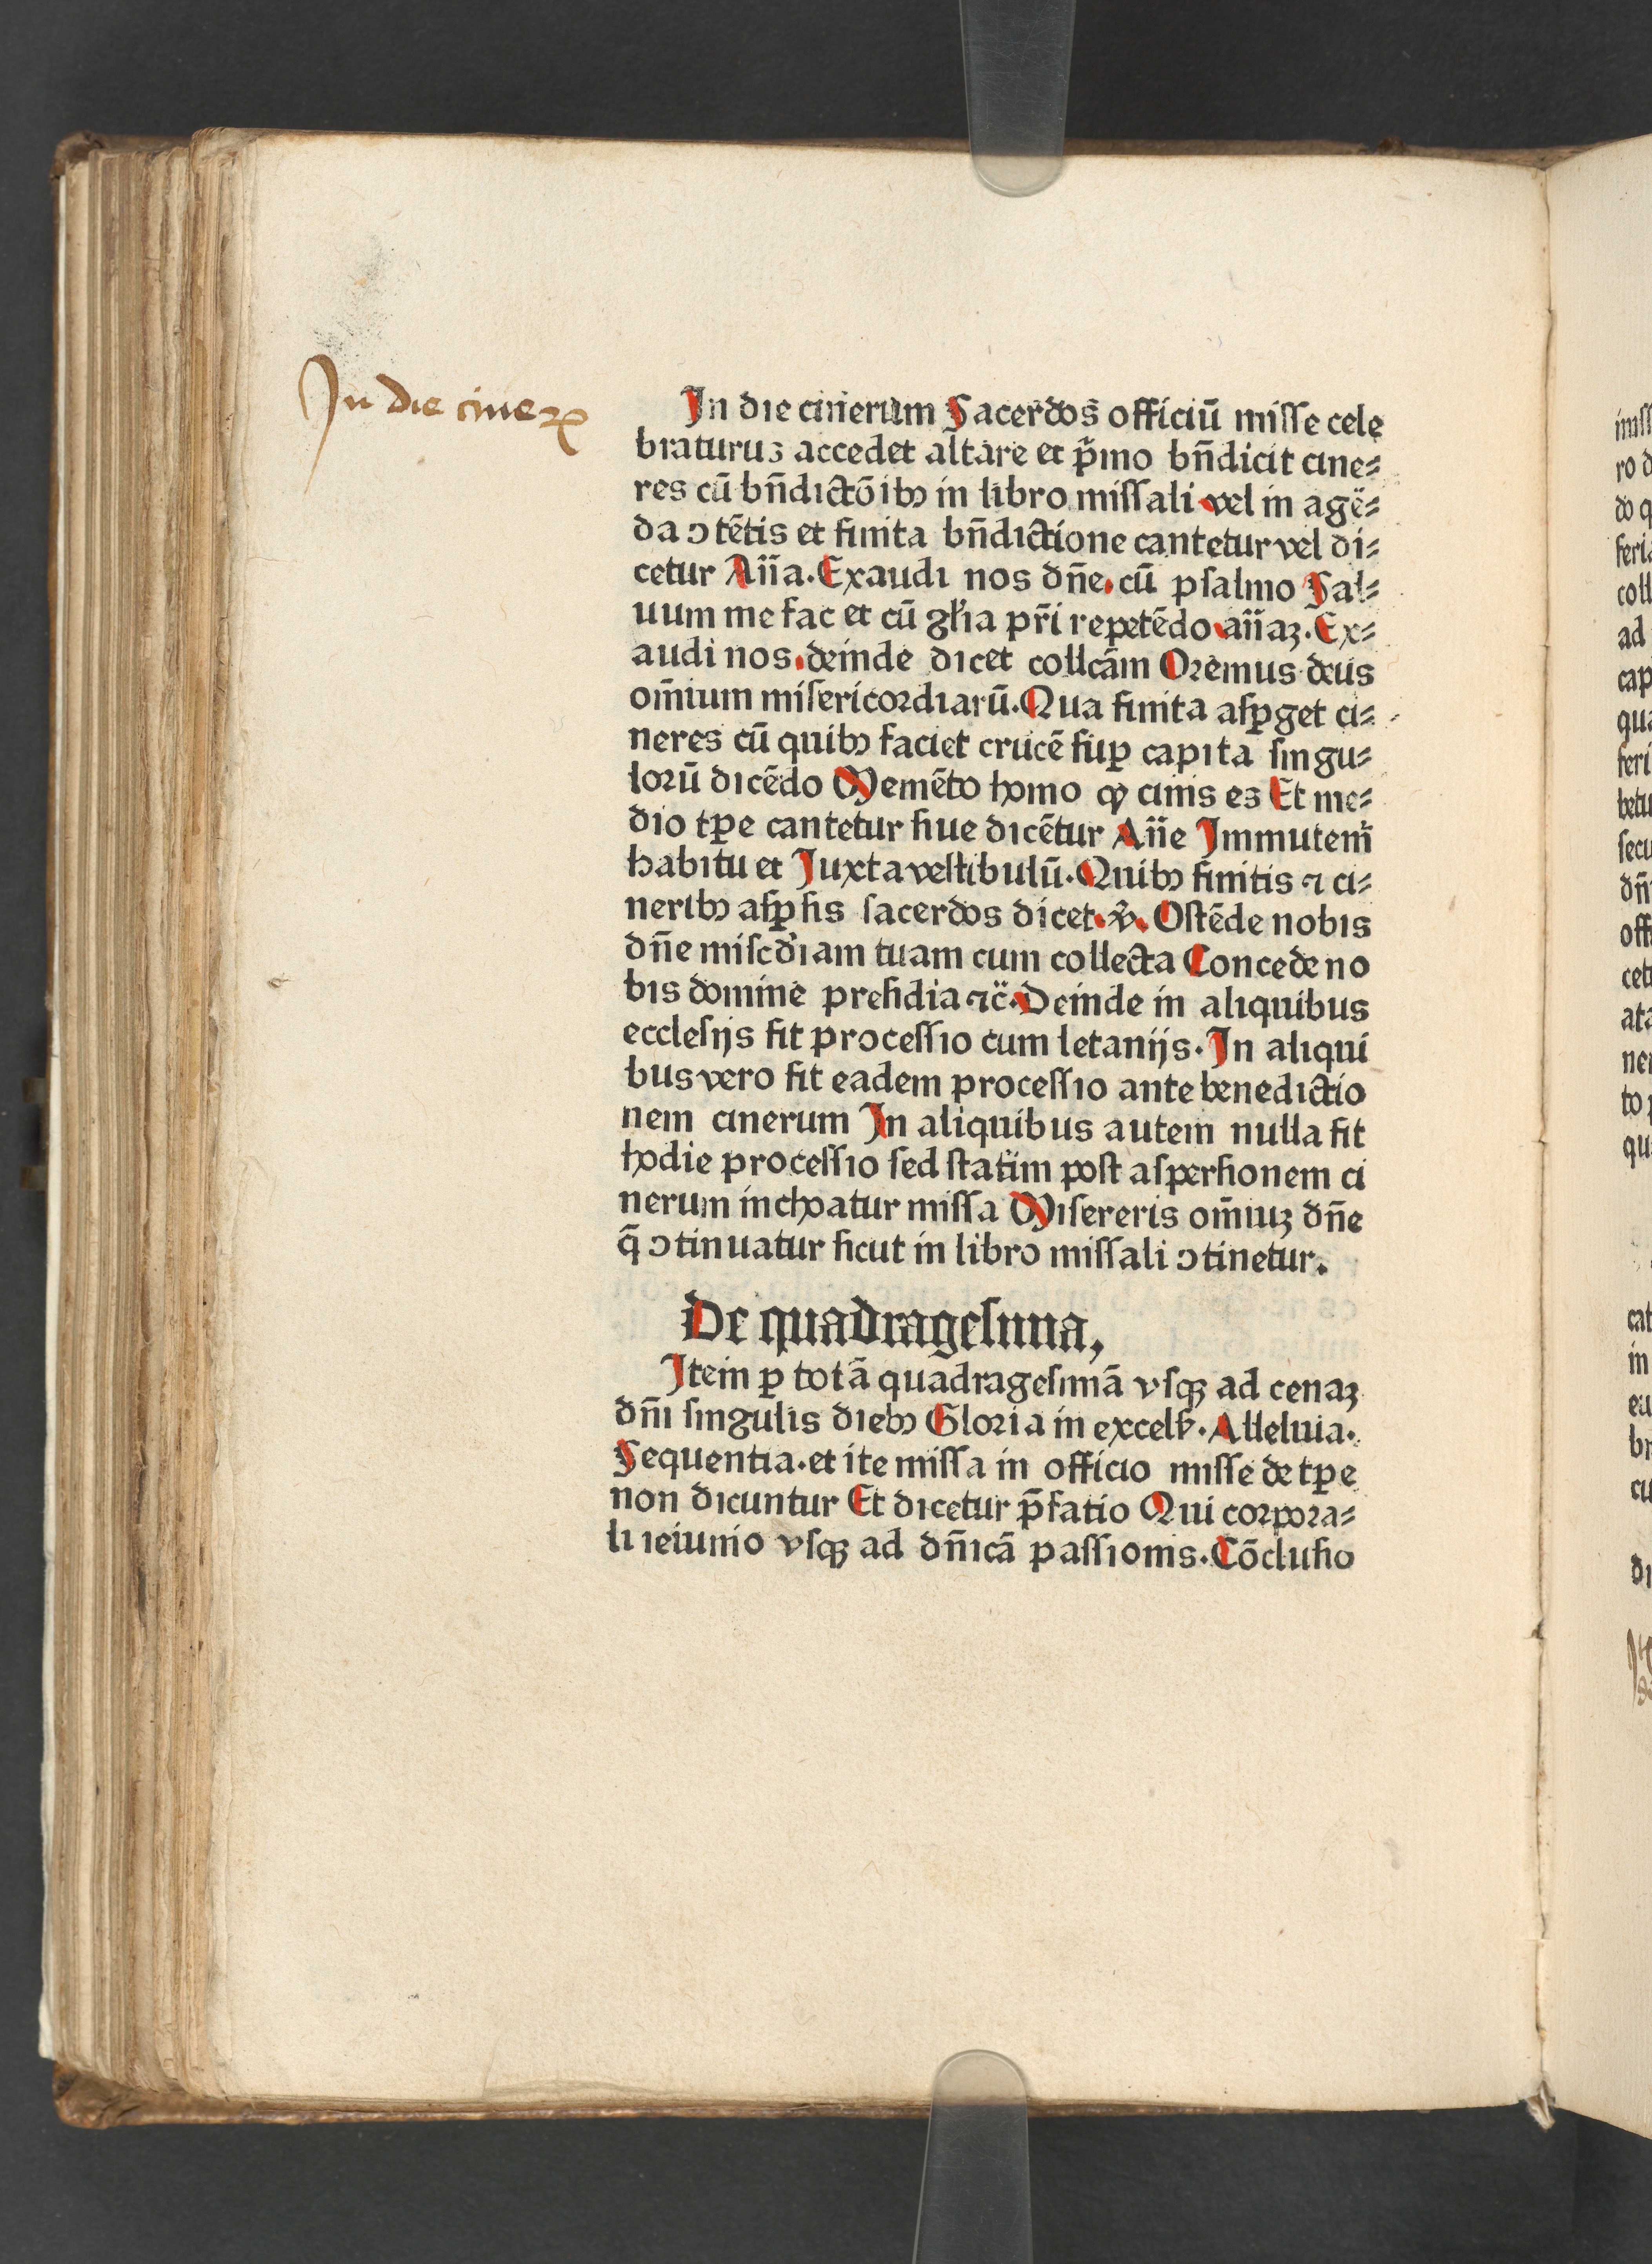 In die cineꝝ
In die cinerum Sacerdos officiū misse cele
braturus accedet altare et p̄mo bn̄dicit cine⸗
res cū bn̄dictōibꝫ in libro missali vel in agē⸗
da ꝯtētis et finita bn̄dictione cantetur vel di⸗
cetur Ān̄a. Exaudi nos dn̄e. cū psalmo Sal⸗
uum me fac et cū gl'ia pr̄i repetēdo an̄aꝫ. Ex⸗
audi nos. deinde dicet collcām Oremus deus
om̄ium misericordiarū. Qua finita aspꝑget ci⸗
neres cū quibꝫ faciet crucē suꝑ capita singu⸗
lorū dicēdo Memēto homo ꝙ cinis es Et me⸗
dio tꝑe cantetur siue dicētur An̄e Immutem̄
habitu et Juxta vestibulū. Quibꝫ finitis ⁊ ci⸗
neribꝫ aspꝑsis sacerdos dicet. ℣. Ostēde nobis
dn̄e misc̄diam tuam cum collecta Concede no
bis domine presidia ⁊c̄. Deinde in aliquibus
ecclesijs fit processio cum letanijs. In aliqui
bus vero fit eadem processio ante benedictio
nem cinerum In aliquibus autem nulla fit
hodie processio sed statim post aspersionem ci
nerum inchoatur missa Misereris om̄iuꝫ dn̄e
q̄ ꝯtinuatur sicut in libro missali ꝯtinetur.
De quadragesima,
Item ꝑ totā quadragesimā vsqꝫ ad cenaꝫ
dn̄i singulis diebꝫ Gloria in excels̄. Alleluia.
Sequentia. et ite missa in officio misse de tꝑe
non dicuntur Et dicetur p̄fatio Qui corpora⸗
li ieiunio vsqꝫ ad dn̄icā passionis. Cōclusio